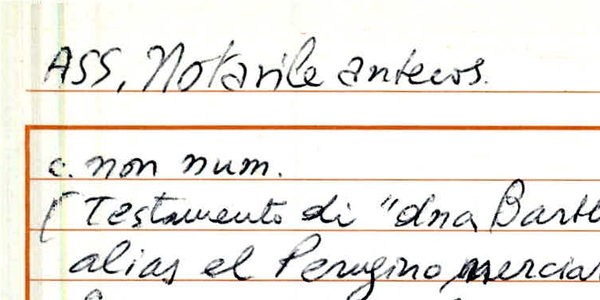 ASS, Notarile antecos.
c. non num.
( Testamento di "dna Bart
alias el Perugino merciar